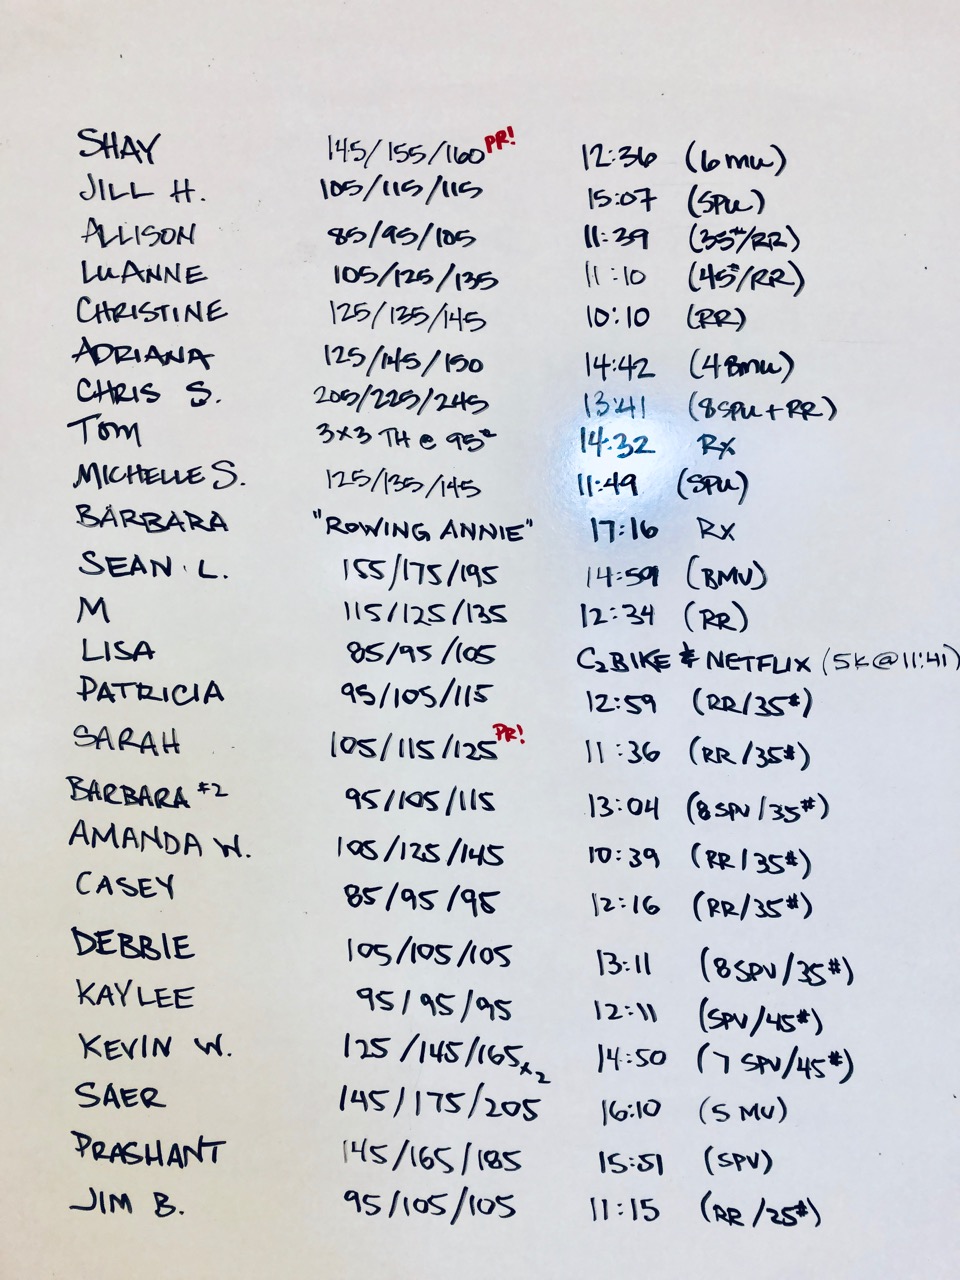 SHAY 145/155/160 PR! 12:36 (6 MU)
JILL H. 105/115/115 15:07 (SPU)
ALLISON 85/95/105 11:39 (35#/RR)
LUANNE 105/125/135 11:10 (45#/RR)
CHRISTINE 125/135/145 10:10 (RR)
ADRIANA 125/145/150 14:42 (4 BMU)
CHRIS S. 205/225/245 13:41 (8 SPU + RR)
TOM 3x3 TH @ 95# 14:32 Rx
MICHELLE S. 125/135/145 11:49 (SPU)
BARBARA "ROWING ANNIE" 17:16 Rx
SEAN L. 155/175/195 14:59 (BMU)
M 115/125/135 12:34 (RR)
LISA 85/95/105 C2 BIKE & NETFLIX (5K @ 11:41)
PATRICIA 95/105/115 12:59 (RR/35#)
SARAH 105/115/125 PR! 11:36 (RR/35#)
BARBARA #2 95/105/115 13:04 (8 SPU/35#)
AMANDA W. 105/125/145 10:39 (RR/35#)
CASEY 85/95/95 12:16 (RR/35#)
DEBBIE 105/105/105 13:11 (8 SPU/35#)
KAYLEE 95/95/95 12:11 (SPU/45#)
KEVIN W. 125/145/165 x2 14:50 (7 SPU/45#)
SAER 145/175/205 16:10 (5 MU)
PRASHANT 145/165/185 15:51 (SPU)
JIM B. 95/105/105 11:15 (RR/25#)